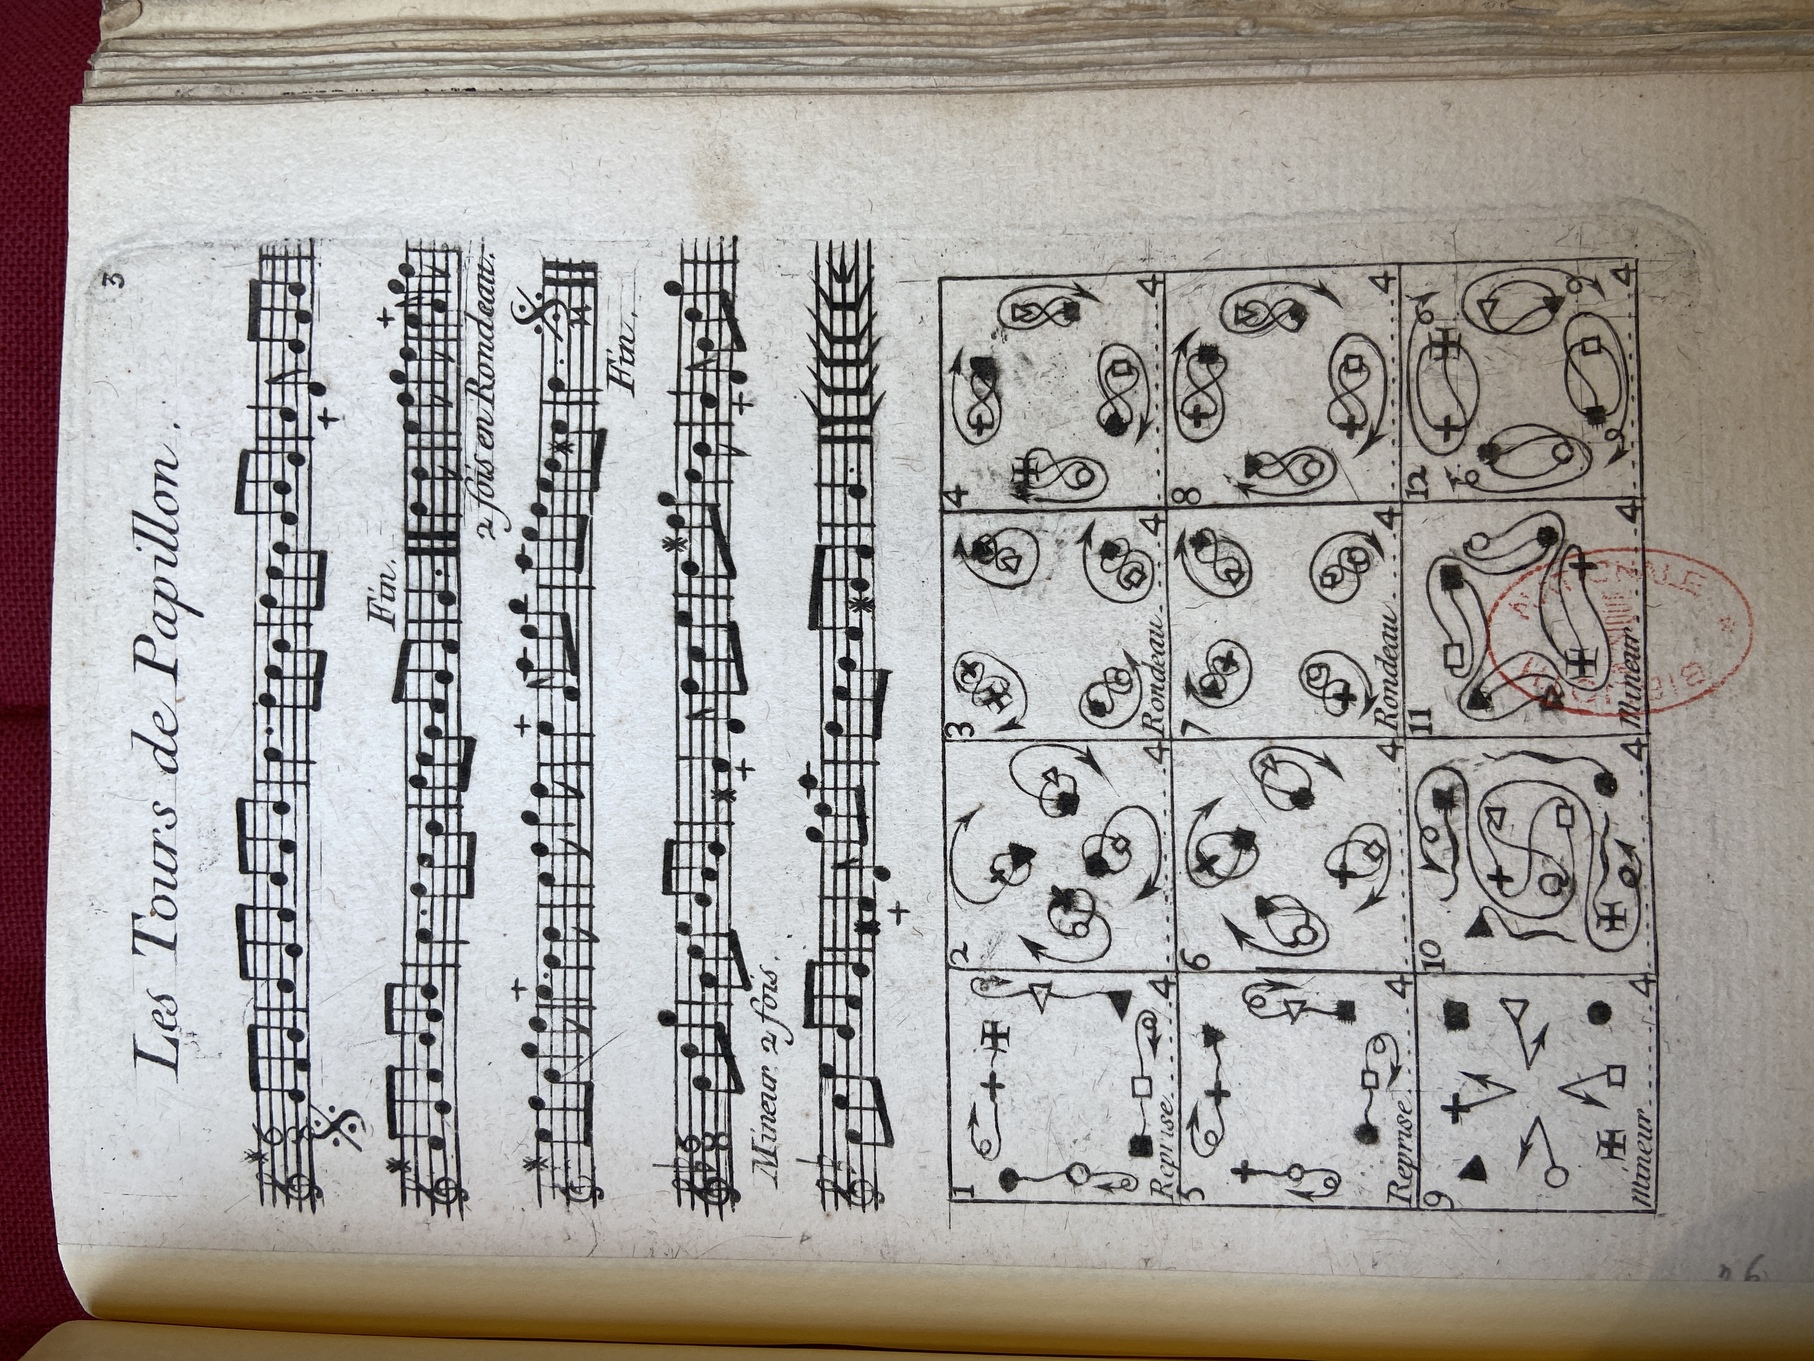 3
Les Tours de Papillon.
6
8
Fin.
2 fois en Rondeau.
Fin.
6
8
Mineur 2 fois.
1 2 3 4
Reprise 4 4 Rondeau 4 4
5 6 7 8
Reprise 4 4 Rondeau 4 4
9 10 11 12
Mineur 4 4 Mineur 4 4